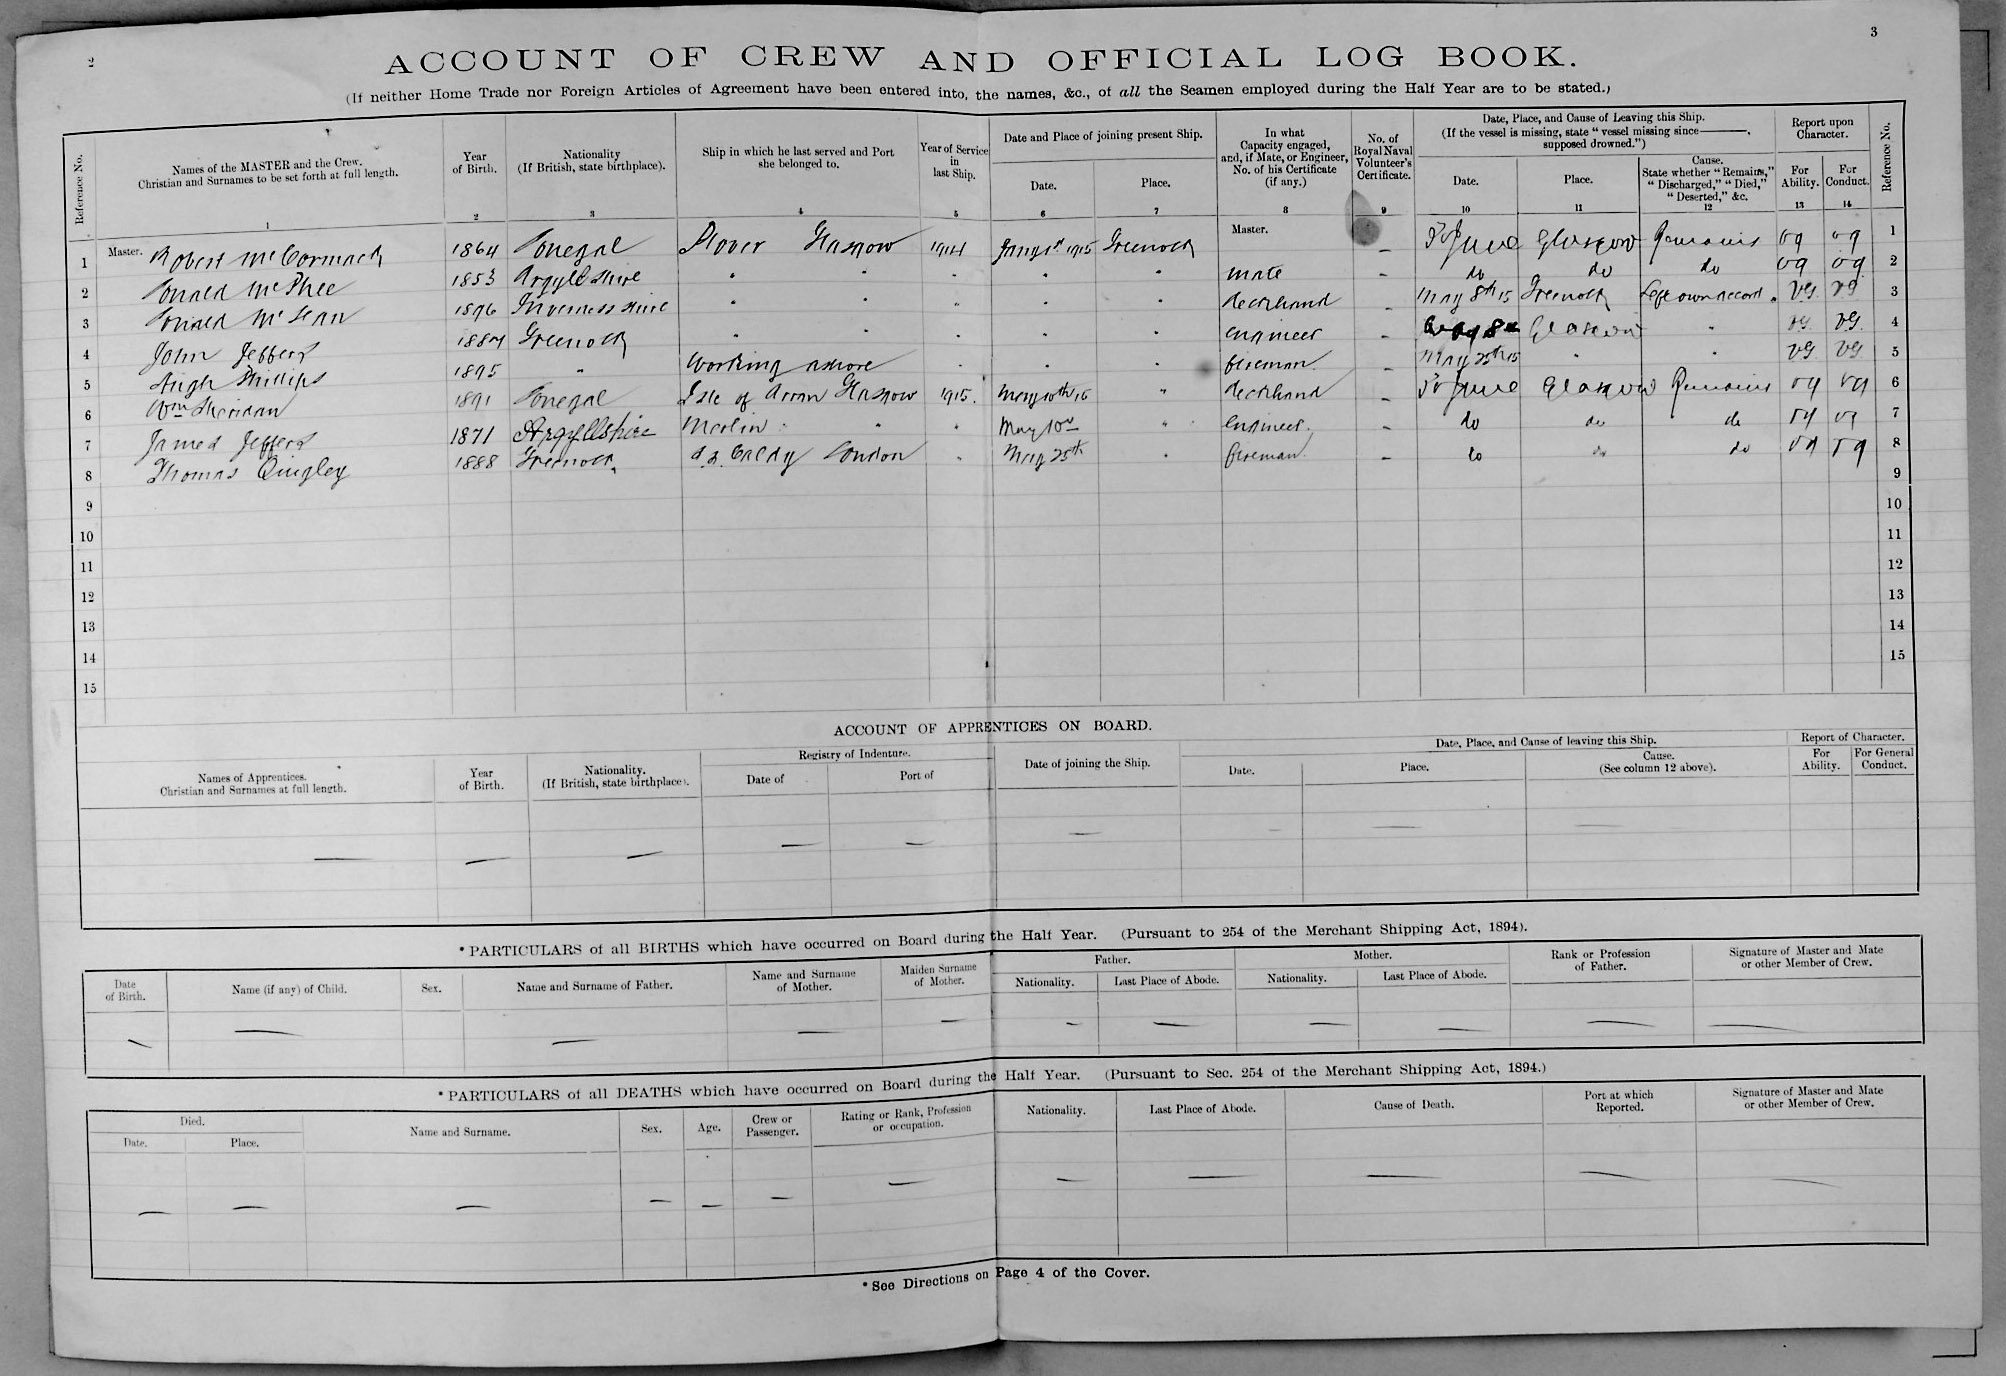 2
3
ACCOUNT OF CREW AND OFFICIAL LOG BOOK.
(If neither Home Trade nor Foreign Articles of Agreement have been entered into, the names, &c., of all the Seamen employed during the Half Year are to be stated.)
Reference No. Names of the MASTER and the Crew. Christian and Surnames to be set forth at full length. Year of Birth. Nationality (If British, state birthplace). Ship in which he last served and Port she belonged to. Year of Service in last Ship. Date and Place of joining present Ship. Date. Place. In what Capacity engaged, and, if Mate, or Engineer, No. of his Certificate (if any.) No. of Royal Naval Volunteer's Certificate. Date, Place, and Cause of Leaving this Ship. (If the vessel is missing, state "vessel missing since ———, supposed drowned.") Date. Place. Cause. State whether "Remains," "Discharged," "Died," "Deserted," &c. Report upon Character. For Ability. For Conduct. Reference No.
1 2 3 4 5 6 7 8 9 10 11 12 13 14
1 Master. Robert McCormack 1864 Donegal Plover Glasgow 1914 Jany 1st 1915 Greenock Master. – 30 June Glasgow Remains vg vg 1
2 Donald McPhee 1853 Argyllshire " " " " " mate – do do do vg vg 2
3 Donald McLean 1896 Inverness shire " " " " " deckhand – May 8th 15 Greenock Left own accord. vg vg 3
4 John Jeffers 1887 Greenock " " " " " engineer – May 8th Glasgow " vg vg 4
5 Hugh Phillips 1895 " Working ashore " " " fireman. – May 25th 15 " " vg vg 5
6 Wm Sheridan 1891 Donegal Isle of Arran Glasgow 1915. May 10th 15 " deckhand – 30 June Glasgow Remains vg vg 6
7 James Jeffers 1871 Argyllshire Merlin " " " May 10th " engineer. – do do do vg vg 7
8 Thomas Quigley 1888 Greenock s.s. Caldy London " May 25th " fireman. – do do do vg vg 8
9 9
10 10
11 11
12 12
13 13
14 14
15 15
ACCOUNT OF APPRENTICES ON BOARD.
Names of Apprentices. Christian and Surnames at full length. Year of Birth. Nationality. (If British, state birthplace). Registry of Indenture. Date of Port of Date of joining the Ship. Date, Place, and Cause of leaving this Ship. Date. Place. Cause. (See column 12 above). Report of Character. For Ability. For General Conduct.
— — — — — — — — —
*PARTICULARS of all BIRTHS which have occurred on Board during the Half Year. (Pursuant to 254 of the Merchant Shipping Act, 1894).
Date of Birth. Name (if any) of Child. Sex. Name and Surname of Father. Name and Surname of Mother. Maiden Surname of Mother. Father. Nationality. Last Place of Abode. Mother. Nationality. Last Place of Abode. Rank or Profession of Father. Signature of Master and Mate or other Member of Crew.
— — — — — — — — — — —
*PARTICULARS of all DEATHS which have occurred on Board during the Half Year. (Pursuant to Sec. 254 of the Merchant Shipping Act, 1894.)
Died. Date. Place. Name and Surname. Sex. Age. Crew or Passenger. Rating or Rank, Profession or occupation. Nationality. Last Place of Abode. Cause of Death. Port at which Reported. Signature of Master and Mate or other Member of Crew.
— — — — — — — — — — — —
*See Directions on Page 4 of the Cover.